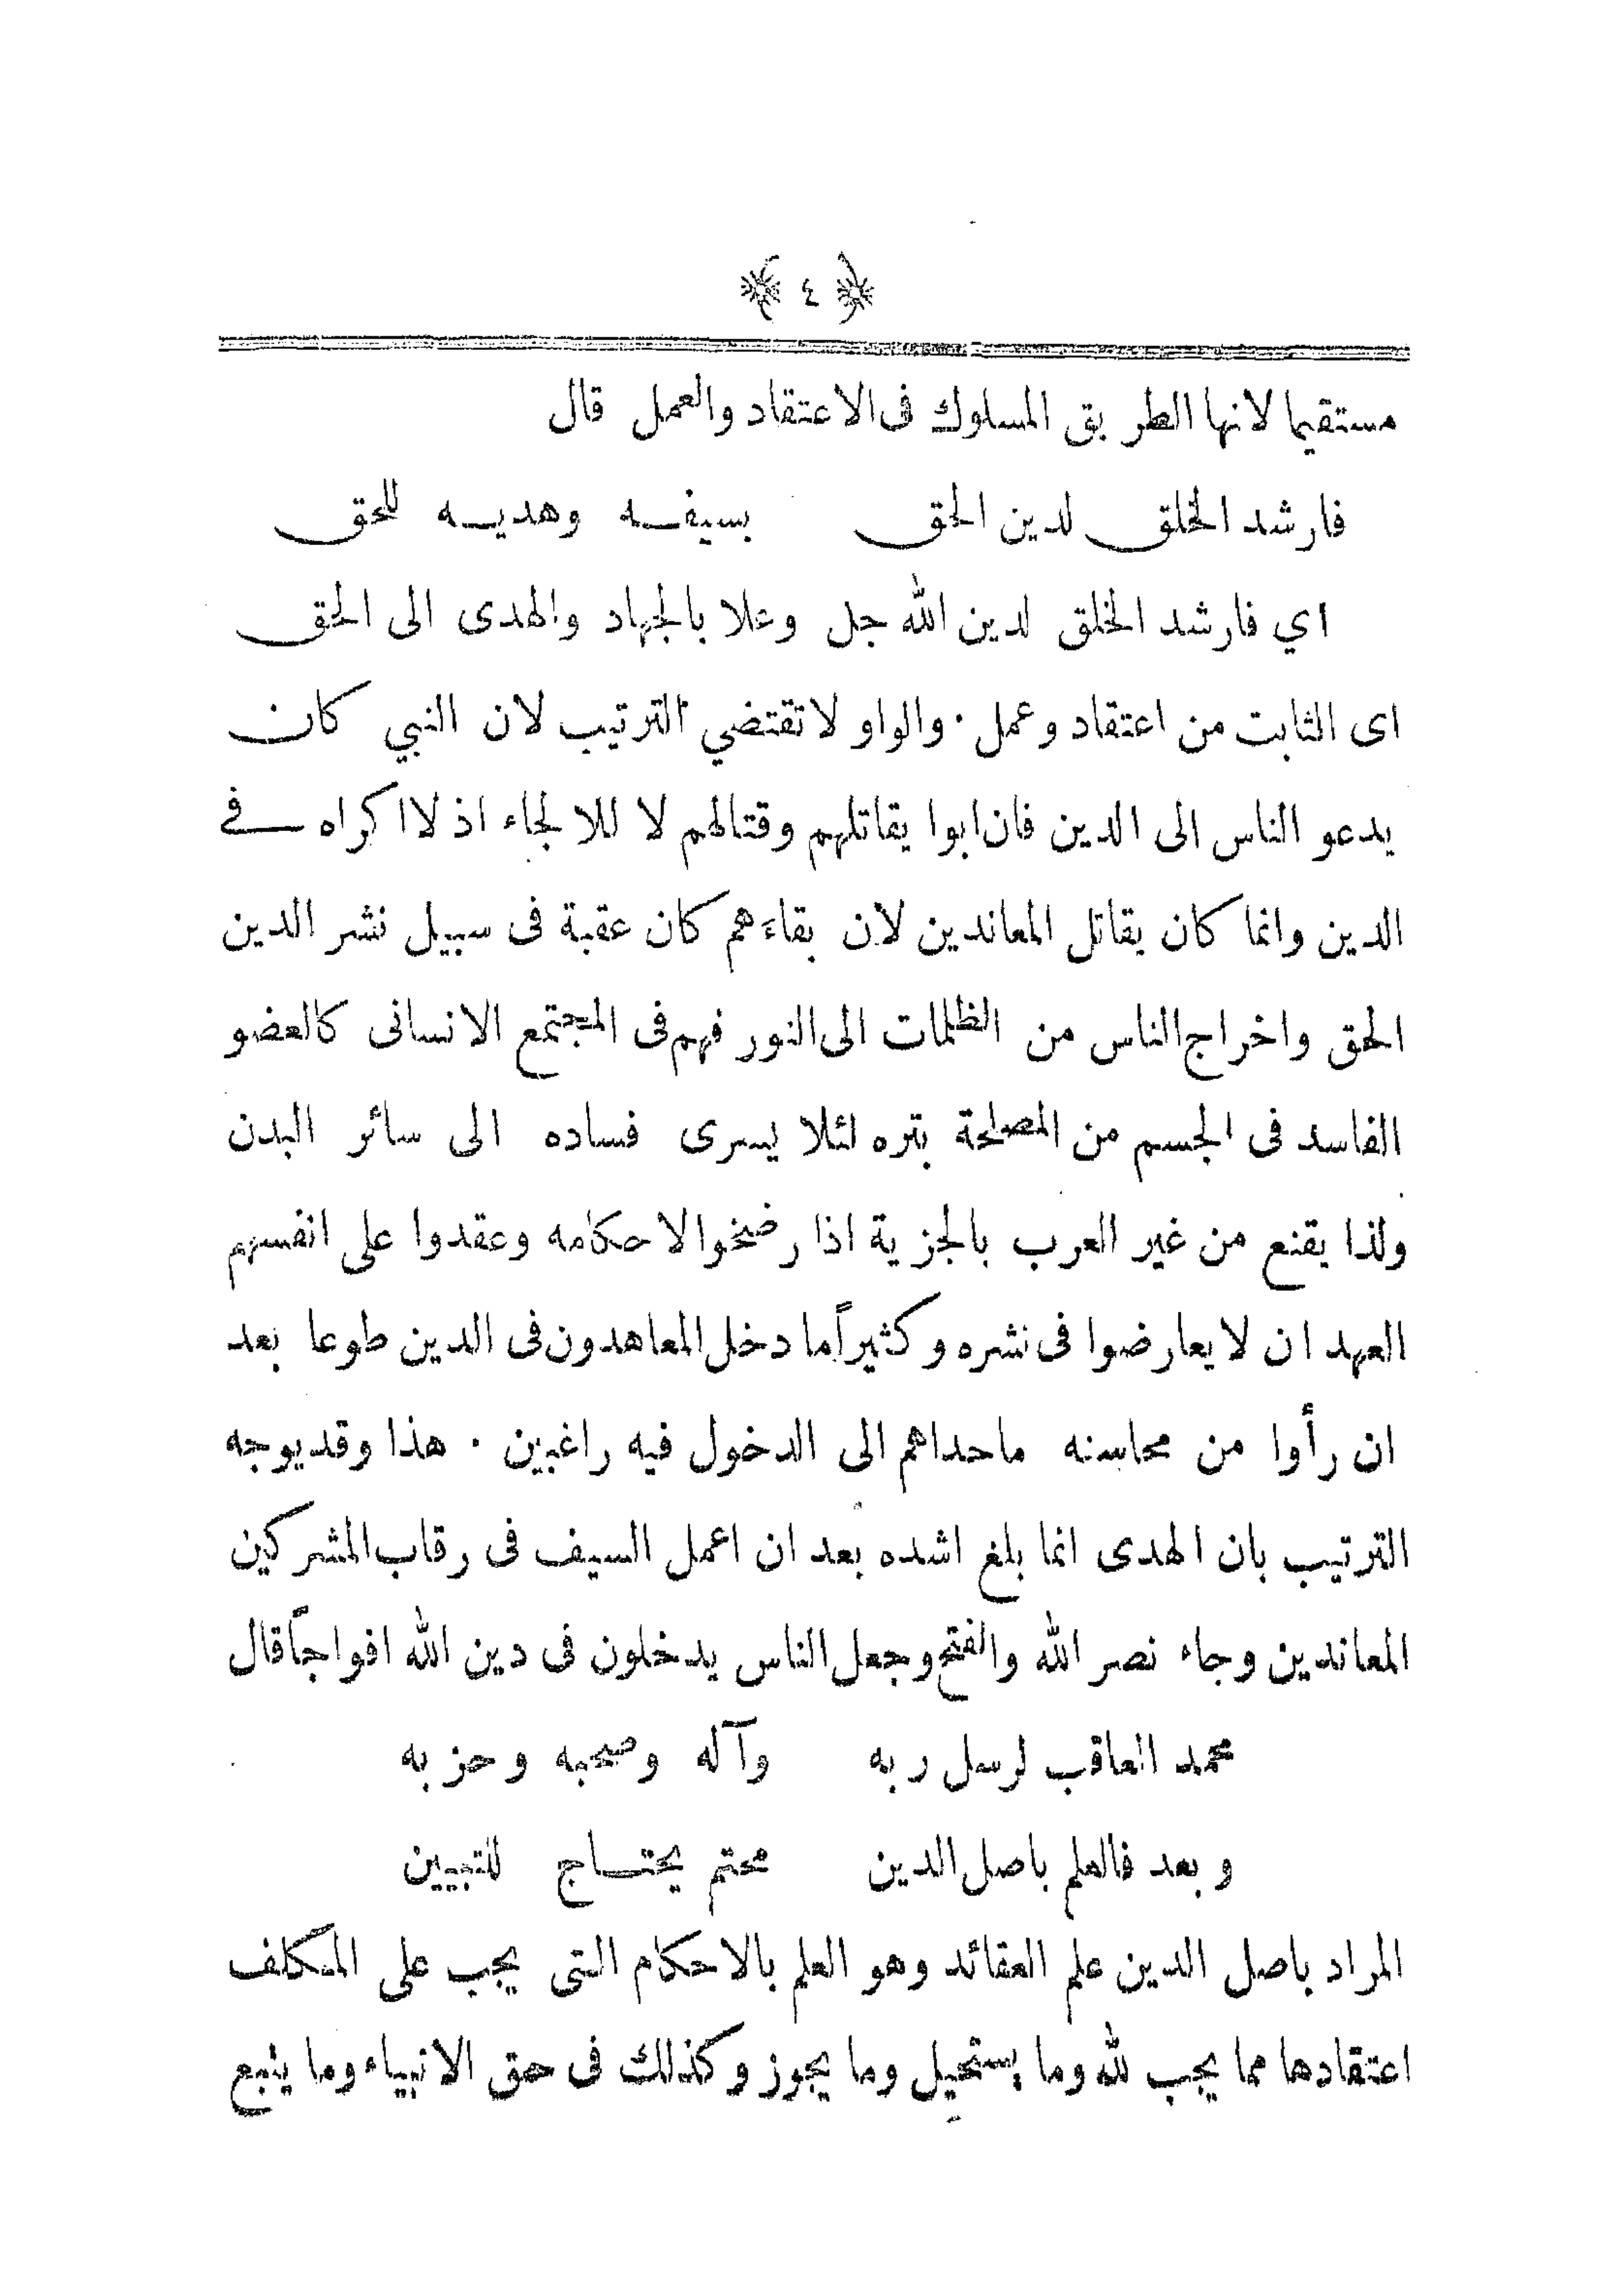 ٤
مستقيما لانها الطريق المسلوك فى الاعتقاد والعمل قال
فارشد الخلق لدين الحق بسيفه وهديه للحق
اي فارشد الخلق لدين الله جل وعلا بالجهاد والهدى الى الحق
اى الثابت من اعتقاد وعمل . والواو لا تقتضي الترتيب لان النبي كان
يدعو الناس الى الدين فان ابوا يقاتلهم وقتالهم لا للالجاء اذ لا اكراه في
الدين وانما كان يقاتل المعاندين لان بقاءهم كان عقبة فى سبيل نشر الدين
الحق واخراج الناس من الظلمات الى النور فهم فى المجتمع الانسانى كالعضو
الفاسد فى الجسم من المصلحة بتره لئلا يسرى فساده الى سائر البدن
ولذا يقنع من غير العرب بالجزية اذا رضخوا لاحكامه وعقدوا على انفسهم
العهد ان لا يعارضوا فى نشره وكثيراً ما دخل المعاهدون فى الدين طوعا بعد
ان رأوا من محاسنه ما حداهم الى الدخول فيه راغبين . هذا وقد يوجه
الترتيب بان الهدى انما بلغ اشده بعد ان اعمل السيف فى رقاب المشركين
المعاندين وجاء نصر الله والفتح وجعل الناس يدخلون فى دين الله افواجاً قال
محمد العاقب لرسل ربه وآله وصحبه وحزبه
وبعد فالعلم باصل الدين محتم يحتاج للتبيين
المراد باصل الدين علم العقائد وهو العلم بالاحكام التى يجب على المكلف
اعتقادها مما يجب لله وما يستحيل وما يجوز وكذلك فى حق الانبياء وما يتبع